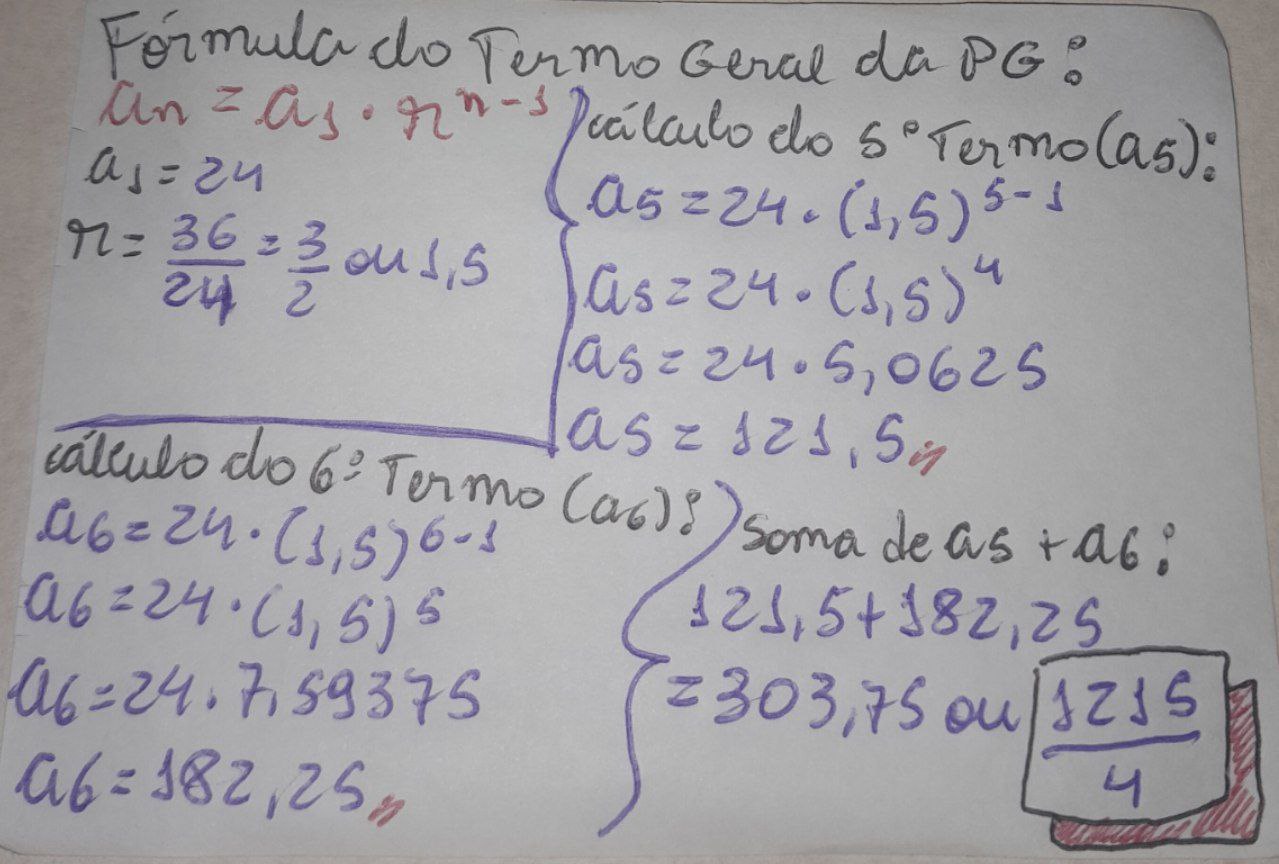 Fórmula do Termo Geral da PG:
an = a1 . r^n-1
a1 = 24
r = 36/24 = 3/2 ou 1,5
cálculo do 5° Termo (a5):
a5 = 24 . (1,5)^5-1
a5 = 24 . (1,5)^4
a5 = 24 . 5,0625
a5 = 121,5
cálculo do 6° Termo (a6):
a6 = 24 . (1,5)^6-1
a6 = 24 . (1,5)^5
a6 = 24 . 7,59375
a6 = 182,25
Soma de a5 + a6:
121,5 + 182,25
= 303,75 ou 1215/4